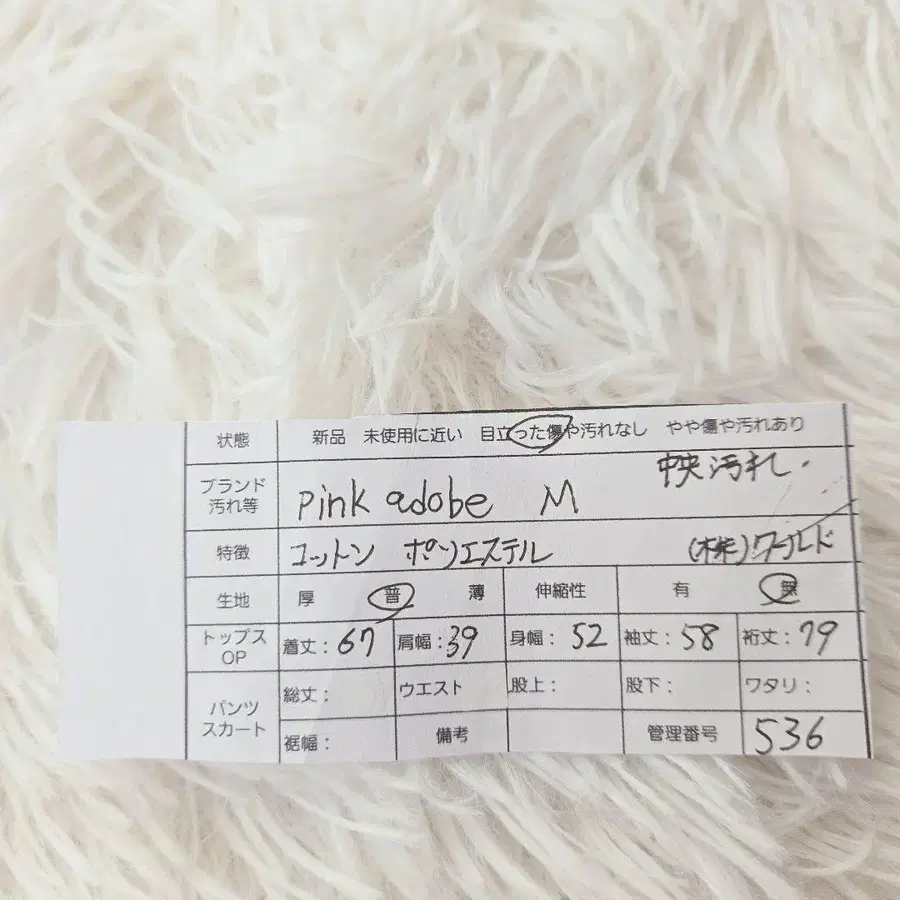 状態 新品 未使用に近い 目立った傷や汚れなし やや傷や汚れあり
ブランド 汚れ等 pink adobe M 中央汚れ.
特徴 コットン ポリエステル (株)ワールド
生地 厚 普 薄 伸縮性 有 無
トップス OP 着丈: 67 肩幅: 39 身幅: 52 袖丈: 58 裄丈: 79
パンツ スカート 総丈: ウエスト 股上: 股下: ワタリ:
裾幅: 備考 管理番号 536